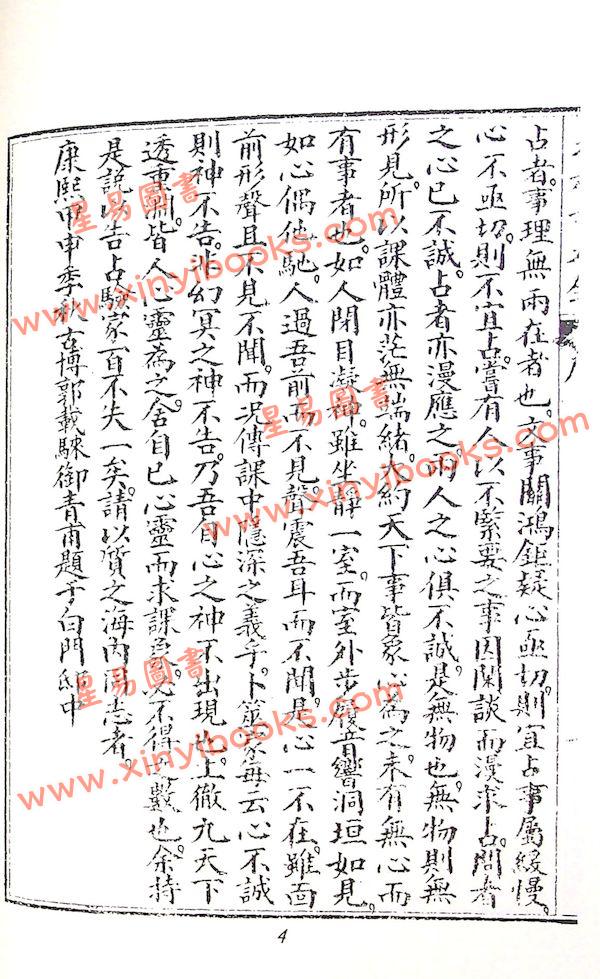 占者。事理無兩在者也。文事關鴻鉅疑心亟切。則宜占。事屬緩慢。
心不亟切。則不宜占。嘗有人以不緊要之事因閑談而漫求占。問者
之心已不誠。占者亦漫應之。兩人之心俱不誠。是無物也。無物則無
形見。所以課體亦茫無端緒。大約天下事皆象心為之。未有無心而
有事者也。如人閉目凝神。雖坐靜一室。而室外步履音響洞垣如見。
如心偶他馳。人過吾前而不見。聲震吾耳而不聞。是心一不在。雖面
前形聲且不見不聞。而況傳課中隱深之義乎。卜筮家每云心不誠
則神不告。非幻冥之神不告。乃吾自心之神不出現也。上徹九天下
透重淵。皆人心靈為之。舍自已心靈而求課象。必不得之數也。余持
是説以告占驗家百不失一矣。請以質之海內同志者
康熙甲申季秋古博郭載騋御青甫題于白門邸中
星易圖書
www.xinyibooks.com
星易圖書
www.xinyibooks.com
星易圖書
www.xinyibooks.com
4